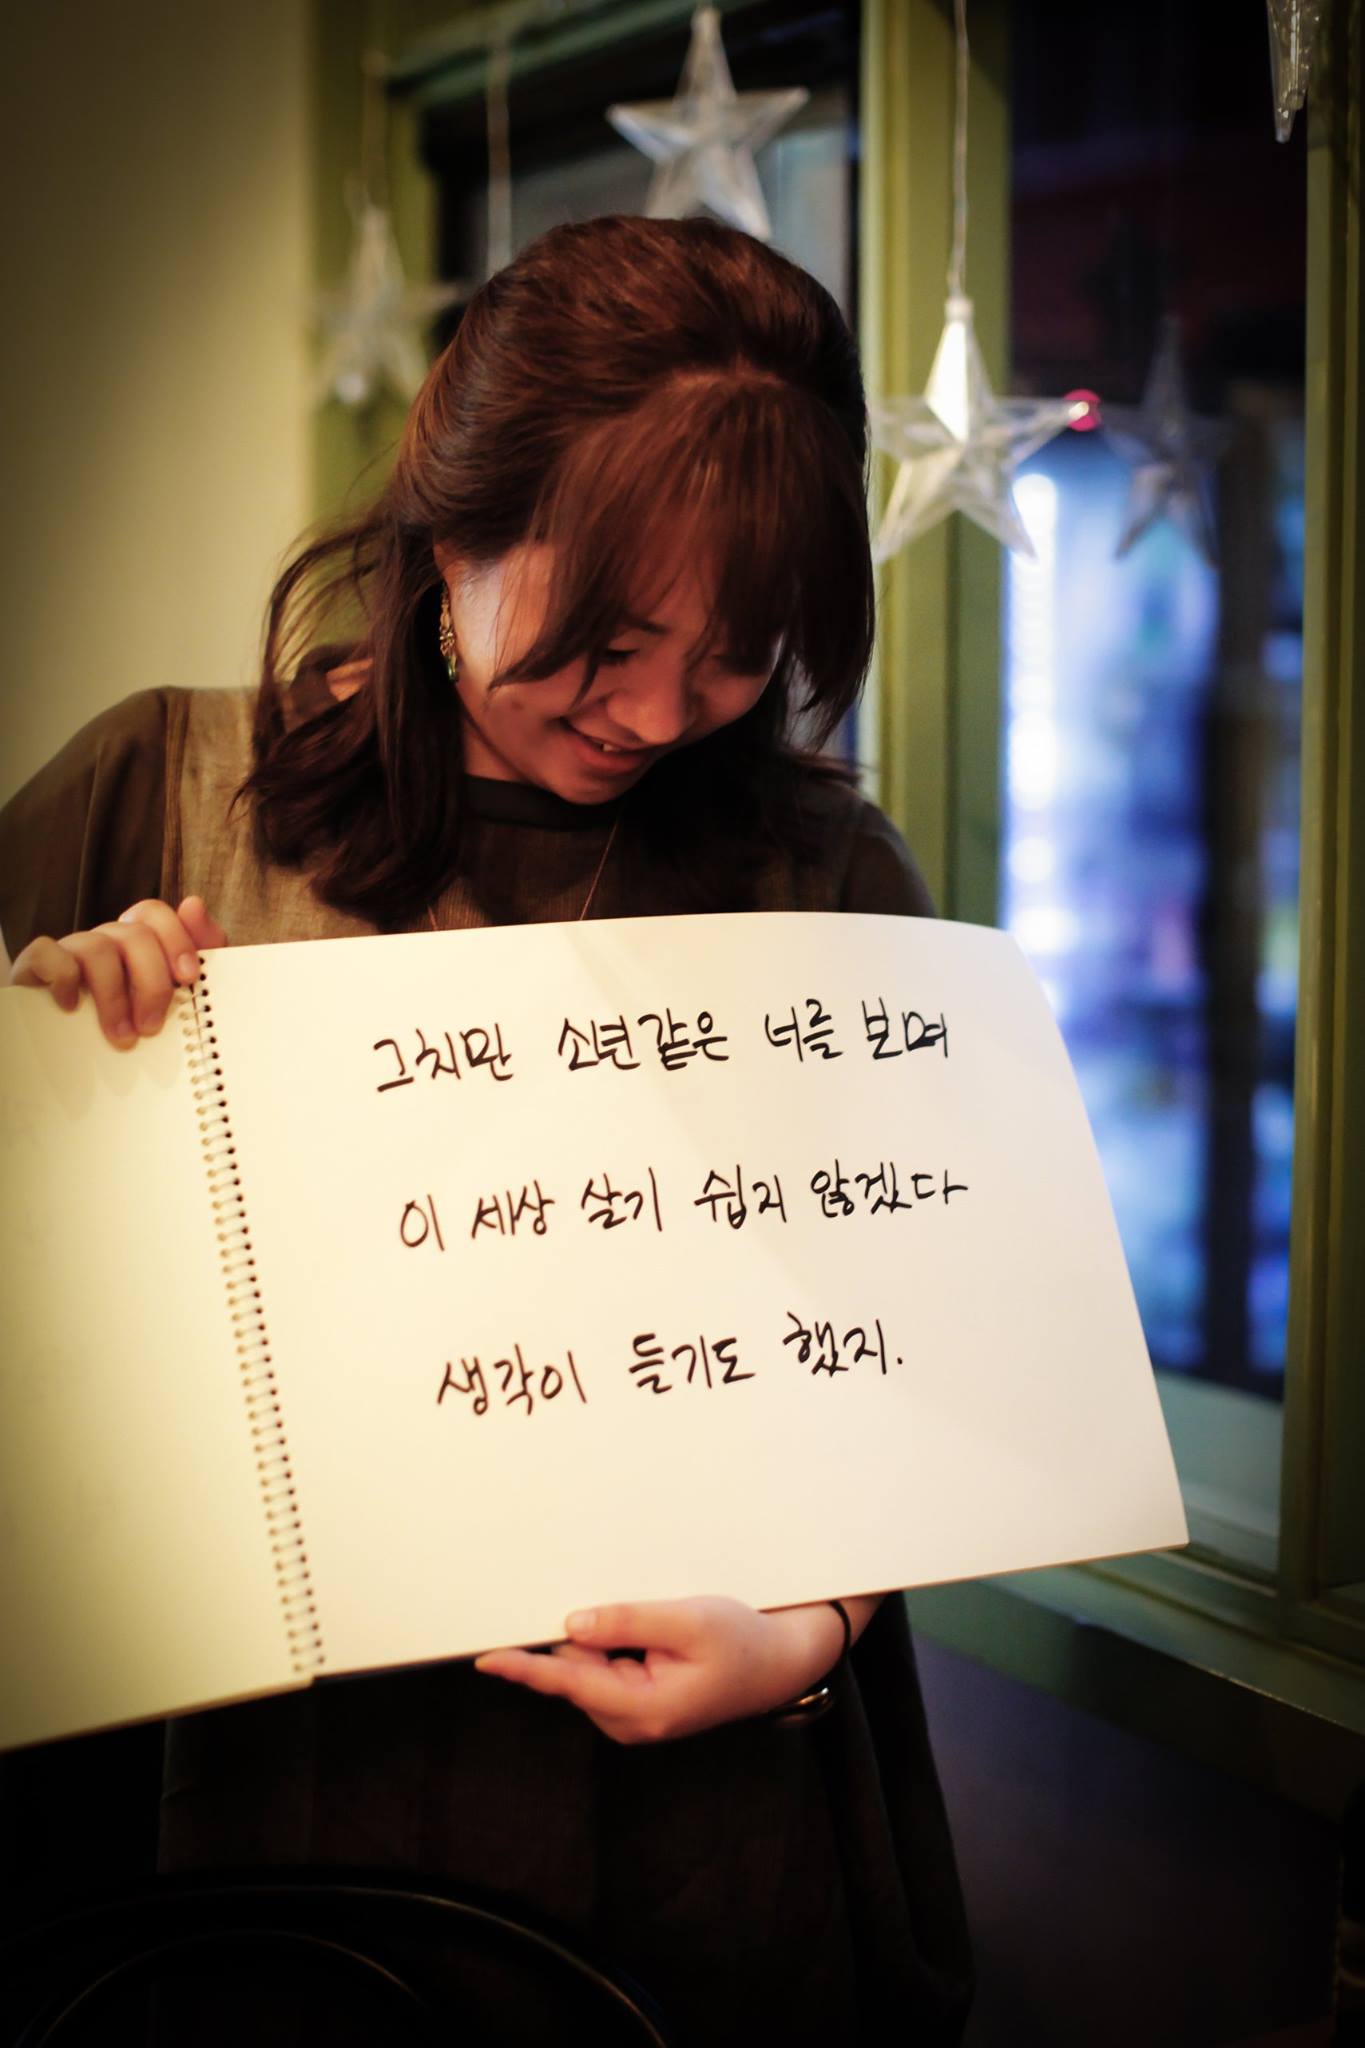 그치만 소년같은 너를 보며
이 세상 살기 쉽지 않겠다
생각이 들기도 했지.